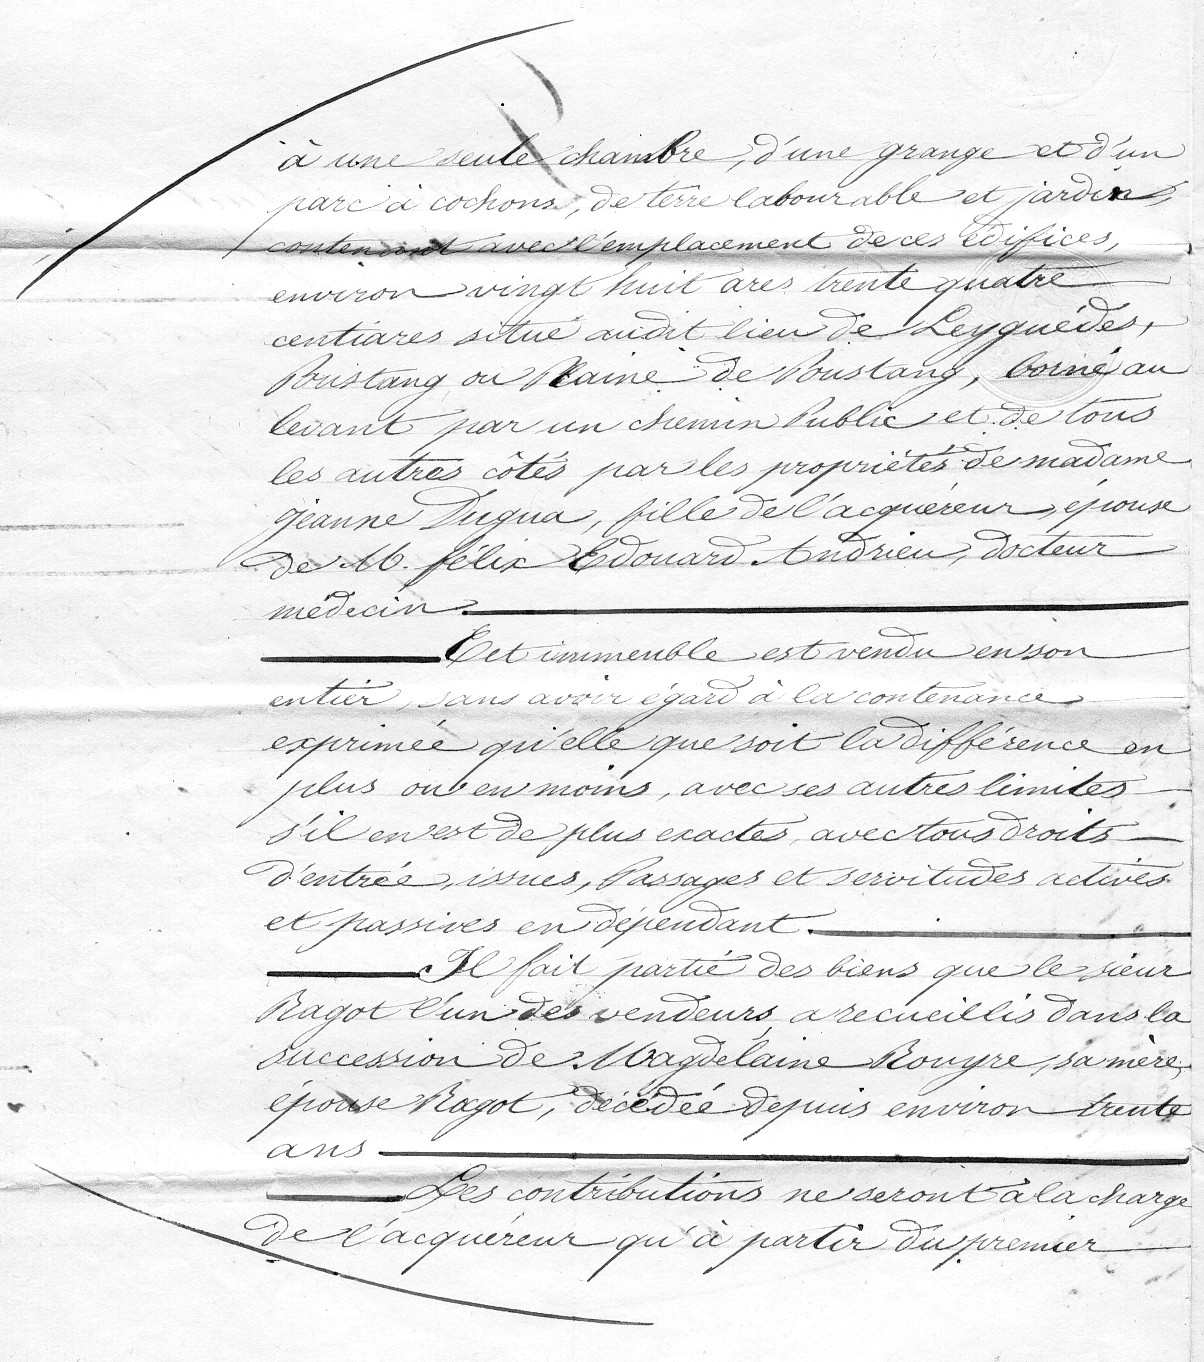 à une seule chambre, d'une grange et d'un
parc à cochons, de terre labourable et jardin,
contenant avec l'emplacement de ces édifices,
environ vingt huit ares trente quatre
centiares situé audit lieu de Leyguédes,
Poustang ou Plaine de Poustang, borné au
levant par un chemin Public et de tous
les autres côtés par les propriétés de madame
Jeanne Dugua, fille de l'acquéreur, épouse
de M. félix Edouard Andrieu, docteur
médecin.
Cet immeuble est vendu en son
entier, sans avoir égard à la contenance
exprimée qu'elle que soit la différence en
plus ou en moins, avec ses autres limites
s'il en est de plus exactes, avec tous droits
d'entrée, issues, Passages et servitudes actives
et passives en dépendant.
Il fait partie des biens que le sieur
Ragot l'un des vendeurs, a recueillis dans la
succession de Magdelaine Rouyre, sa mère,
épouse Ragot, décédée depuis environ trente
ans
Les contributions ne seront à la charge
de l'acquéreur qu'à partir du premier